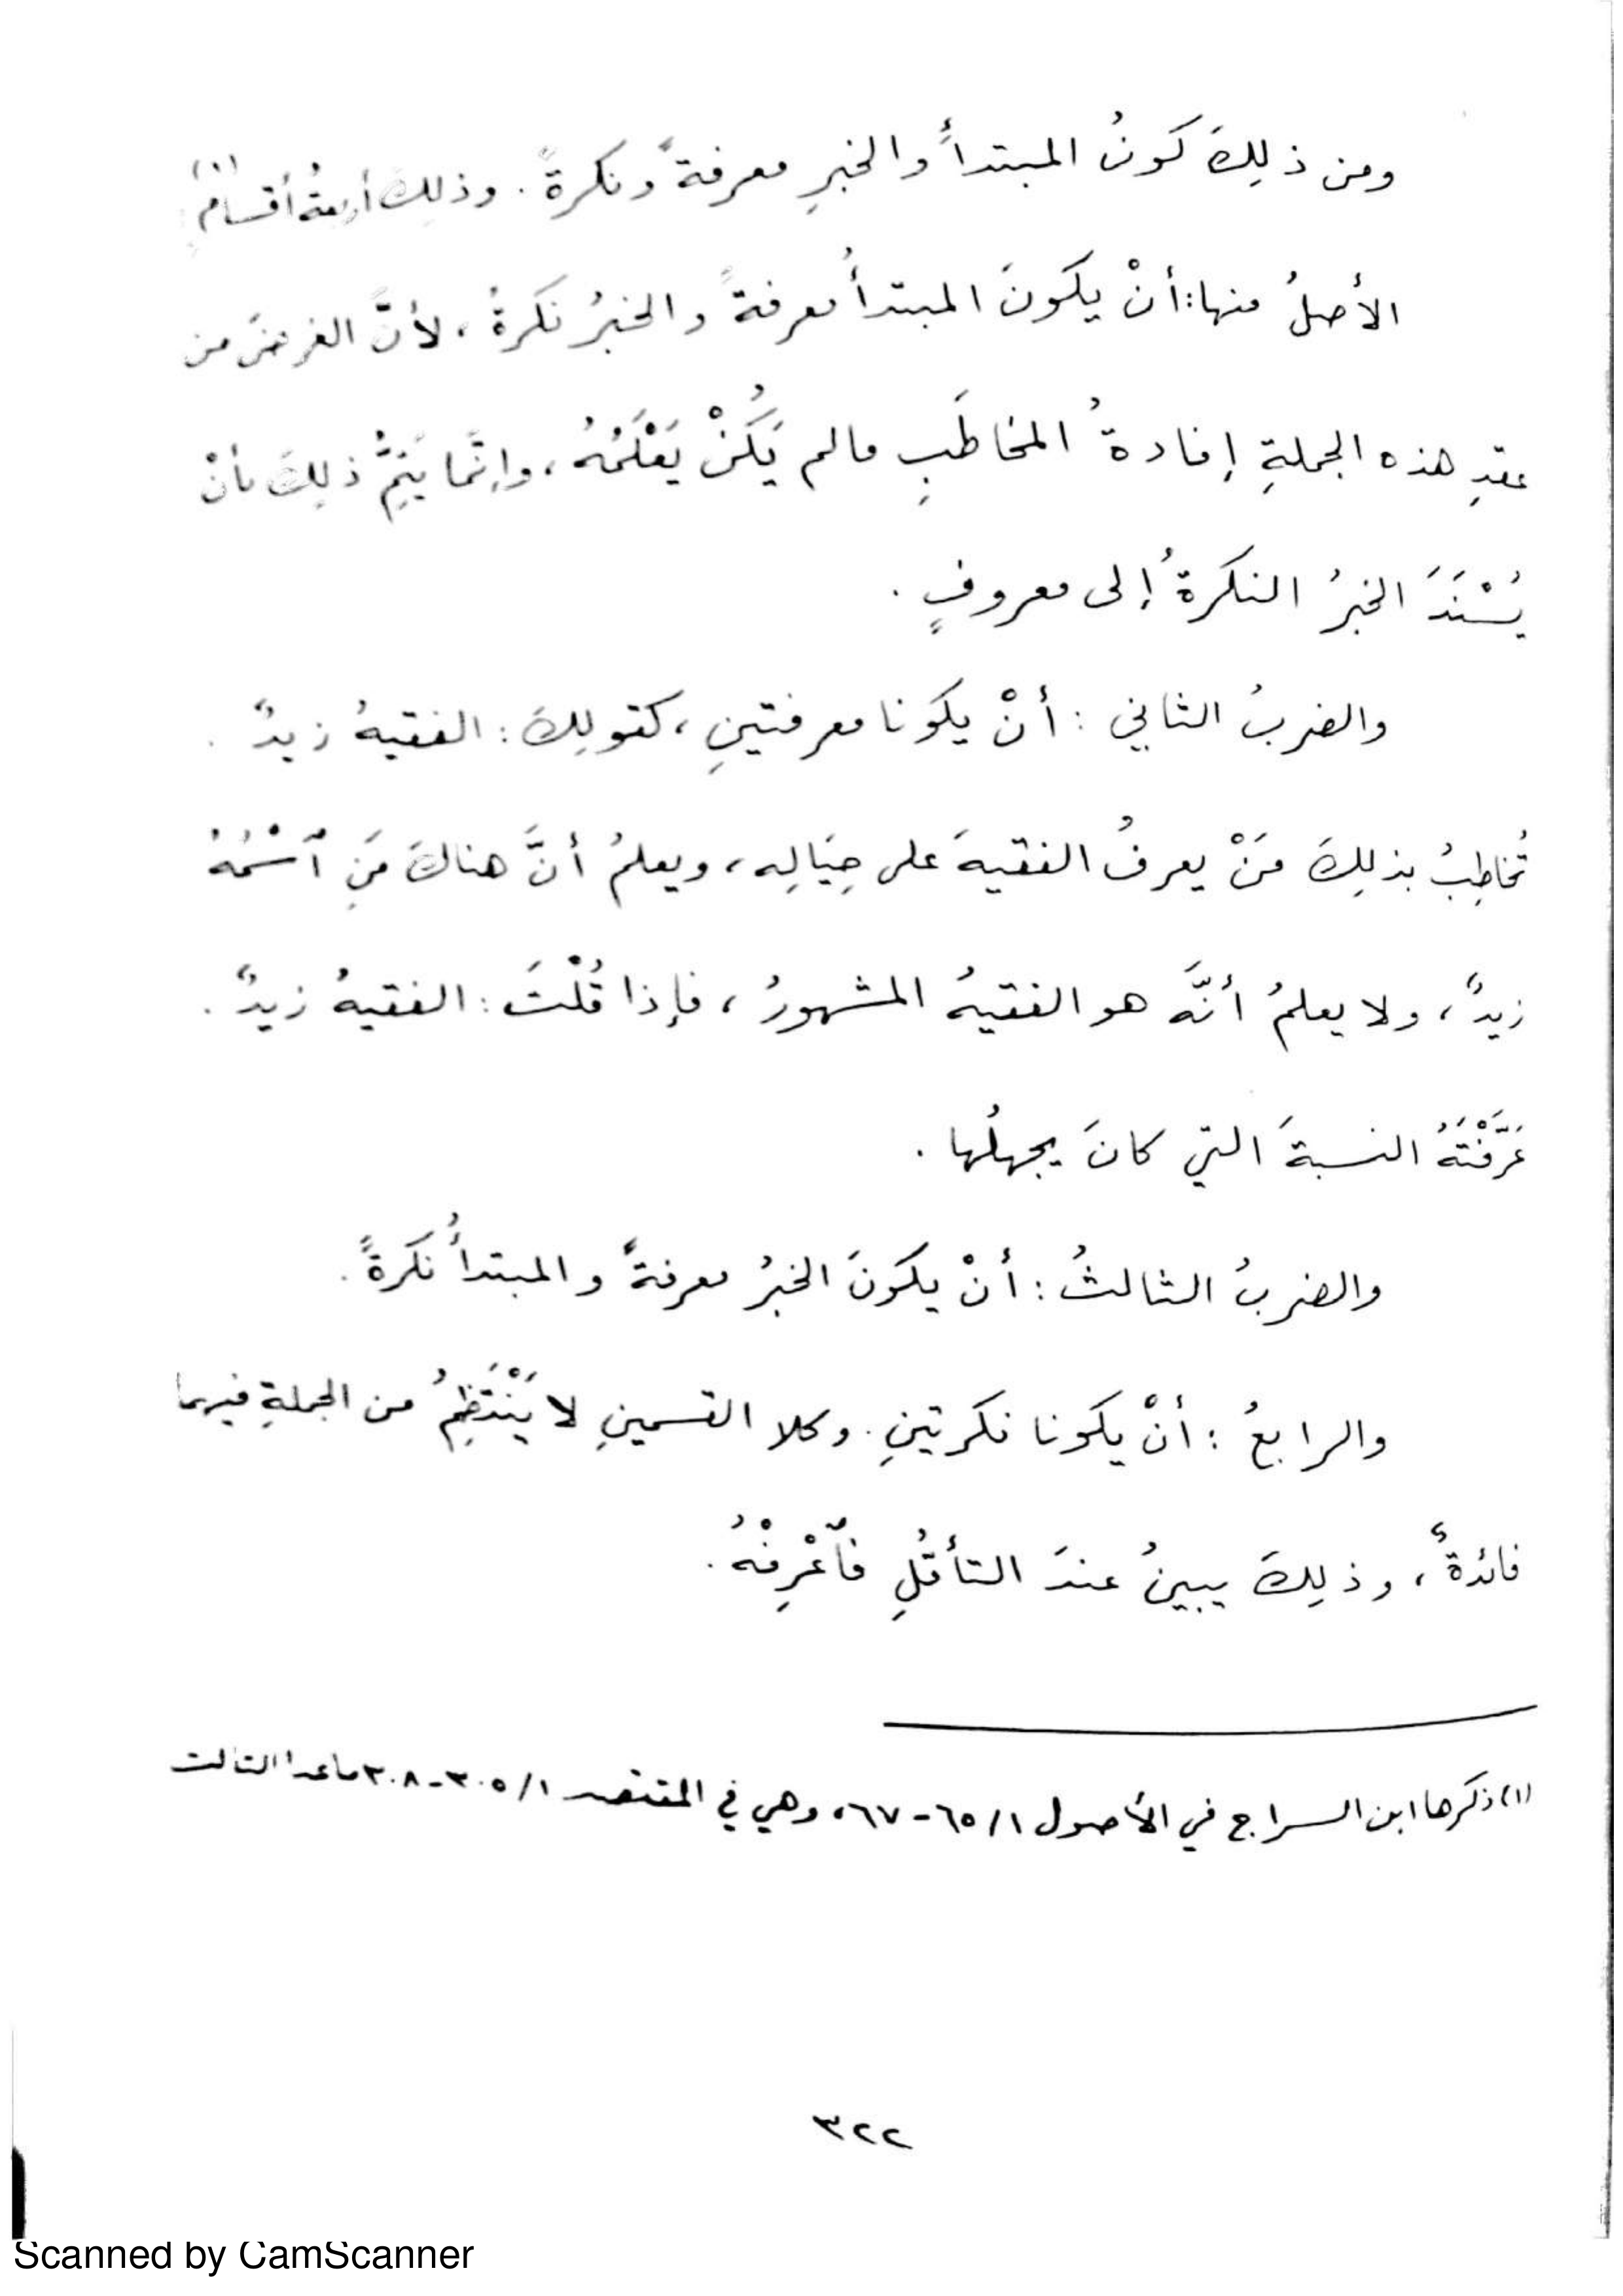 ومن ذلِكَ كونُ المبتدأُ والخبرِ معرفةً ونكرةً . وذلِكَ أربعةُ أقسامٍ (١)
الأصلُ منها : أنْ يكونَ المبتدأُ معرفةً والخبرُ نكرةً ، لأنَّ الغرضَ من
عقدِ هذه الجملةِ إفادةُ المخاطَبِ مالم يَكُنْ يَعْلَمُهُ ، وإنَّما يَتِمُّ ذلِكَ بأنْ
يُسْنَدَ الخبرُ النكرةُ إلى معروفٍ .
والضربُ الثاني : أنْ يكونا معرفتينِ ، كقولِكَ : الفقيهُ زيدٌ .
تُخاطِبُ بذلِكَ مَنْ يعرفُ الفقيهَ على حِيَالِه ، ويعلمُ أنَّ هناكَ مَنِ ٱسْمُهُ
زيدٌ ، ولا يعلمُ أنَّه هو الفقيهُ المشهورُ ، فإذا قُلْتَ : الفقيهُ زيدٌ .
عَرَّفْتَهُ النسبةَ التي كانَ يجهلُها .
والضربُ الثالثُ : أنْ يكونَ الخبرُ معرفةً والمبتدأُ نكرةً .
والرابعُ : أنْ يكونا نكرتينِ . وكلا القسمينِ لا يَنْتَظِمُ من الجملةِ فيهما
فائدةٌ ، وذلِكَ يبينُ عندَ التأمُّلِ فٱعْرِفْهُ .
(١) ذكرها ابن السراج في الأصول ١/ ٦٥ - ٦٧ ، وهي في المقتصد ١/ ٣٠٥ - ٣٠٨ ماعدا الثالث
٣٢٢
Scanned by CamScanner